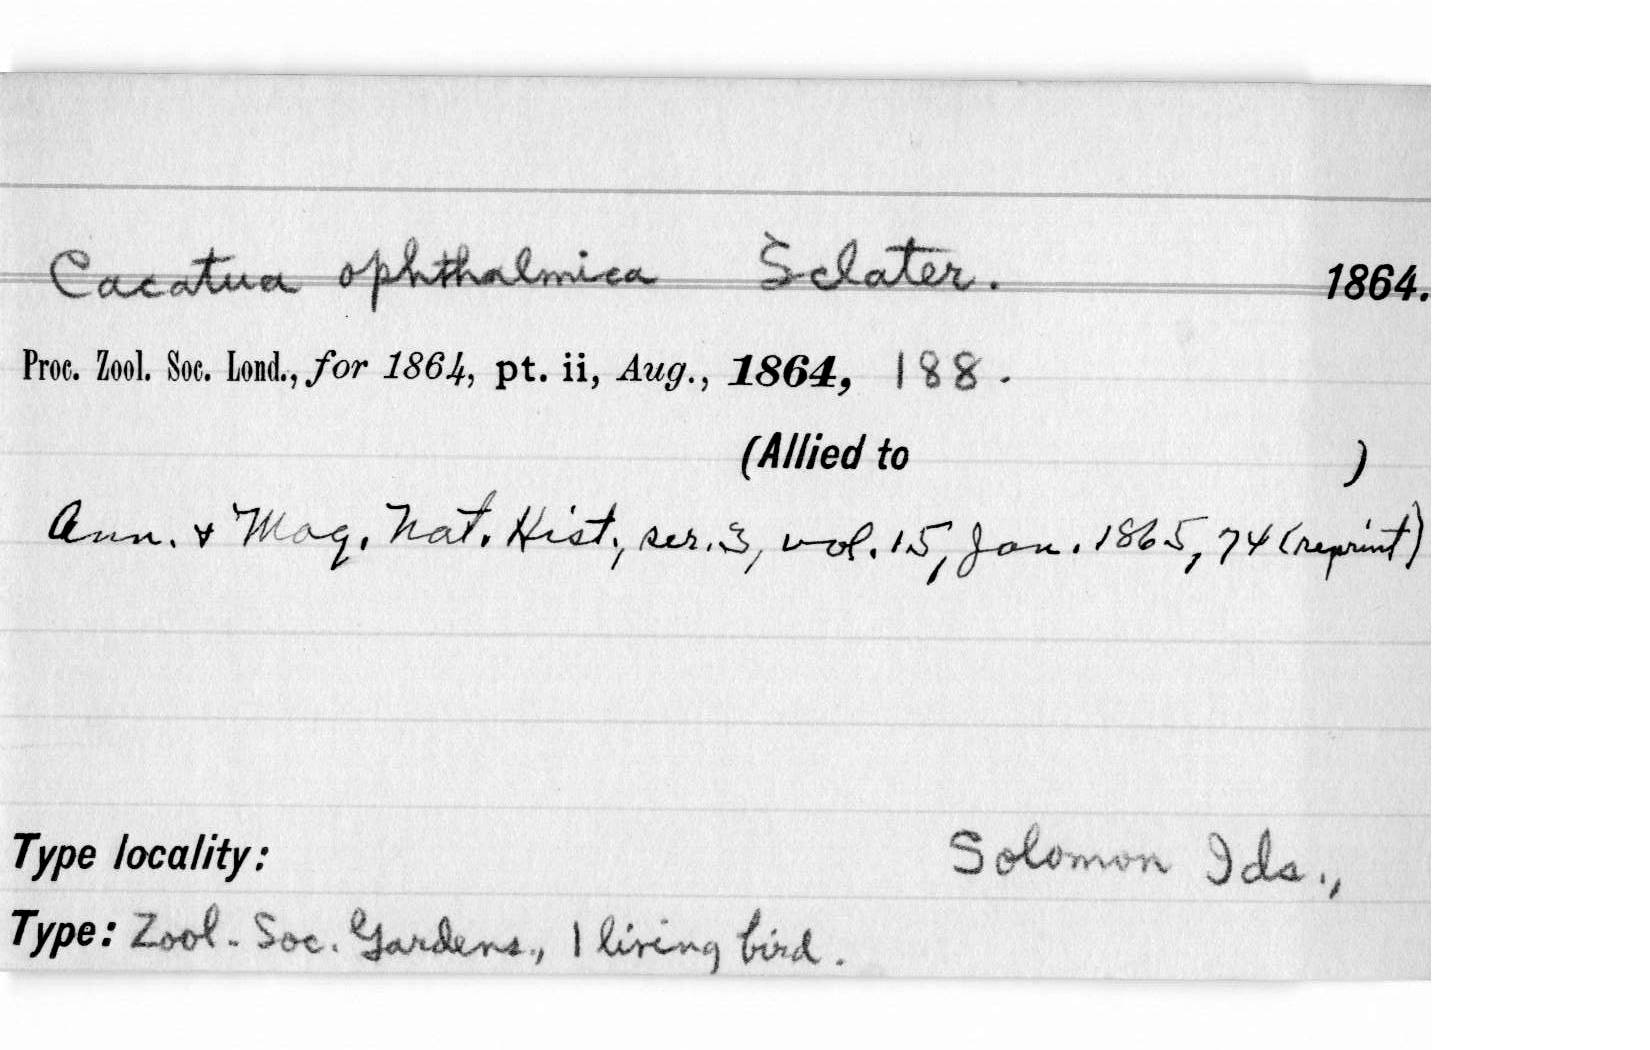 Cacatua ophthalmica Sclater. 1864.
Proc. Zool. Soc. Lond., for 1864, pt. ii, Aug., 1864, 188.
(Allied to )
Ann. & Mag. Nat. Hist., ser. 3, vol. 15, Jan. 1865, 74 (reprint)
Type locality: Solomon Ids.,
Type: Zool. Soc. Gardens., 1 living bird.